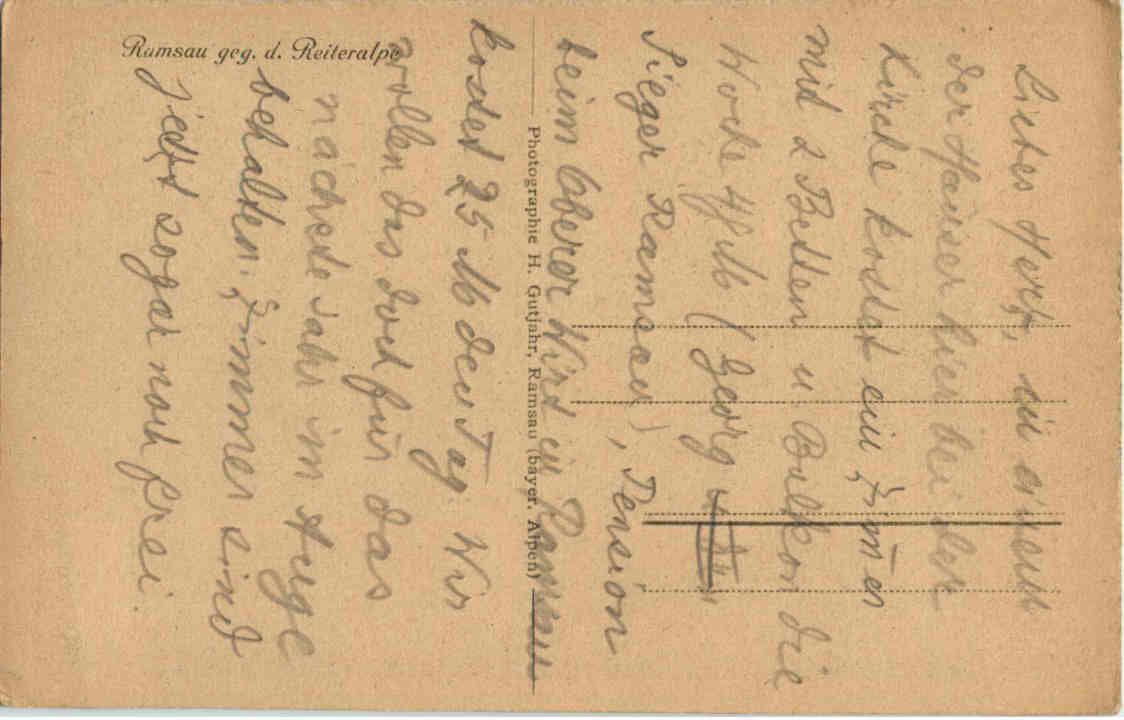 Ramsau geg. d. Reiteralpe
Photographie H. Gutjahr, Ramsau (bayer. Alpen)
Liebes Herz, in einem
der Häuser hier bei der
Kirche kostet ein Zim̄er
mit 2 Betten u Balkon die
Woche M (Georg
Sieger Ramsau), Pension
beim Oberer Wirt in Ramsau
kostet 25 M den Tag. Wir
wollen das doch für das
nächste Jahr im Auge
behalten. Zimmer sind
jetzt sogar noch frei.